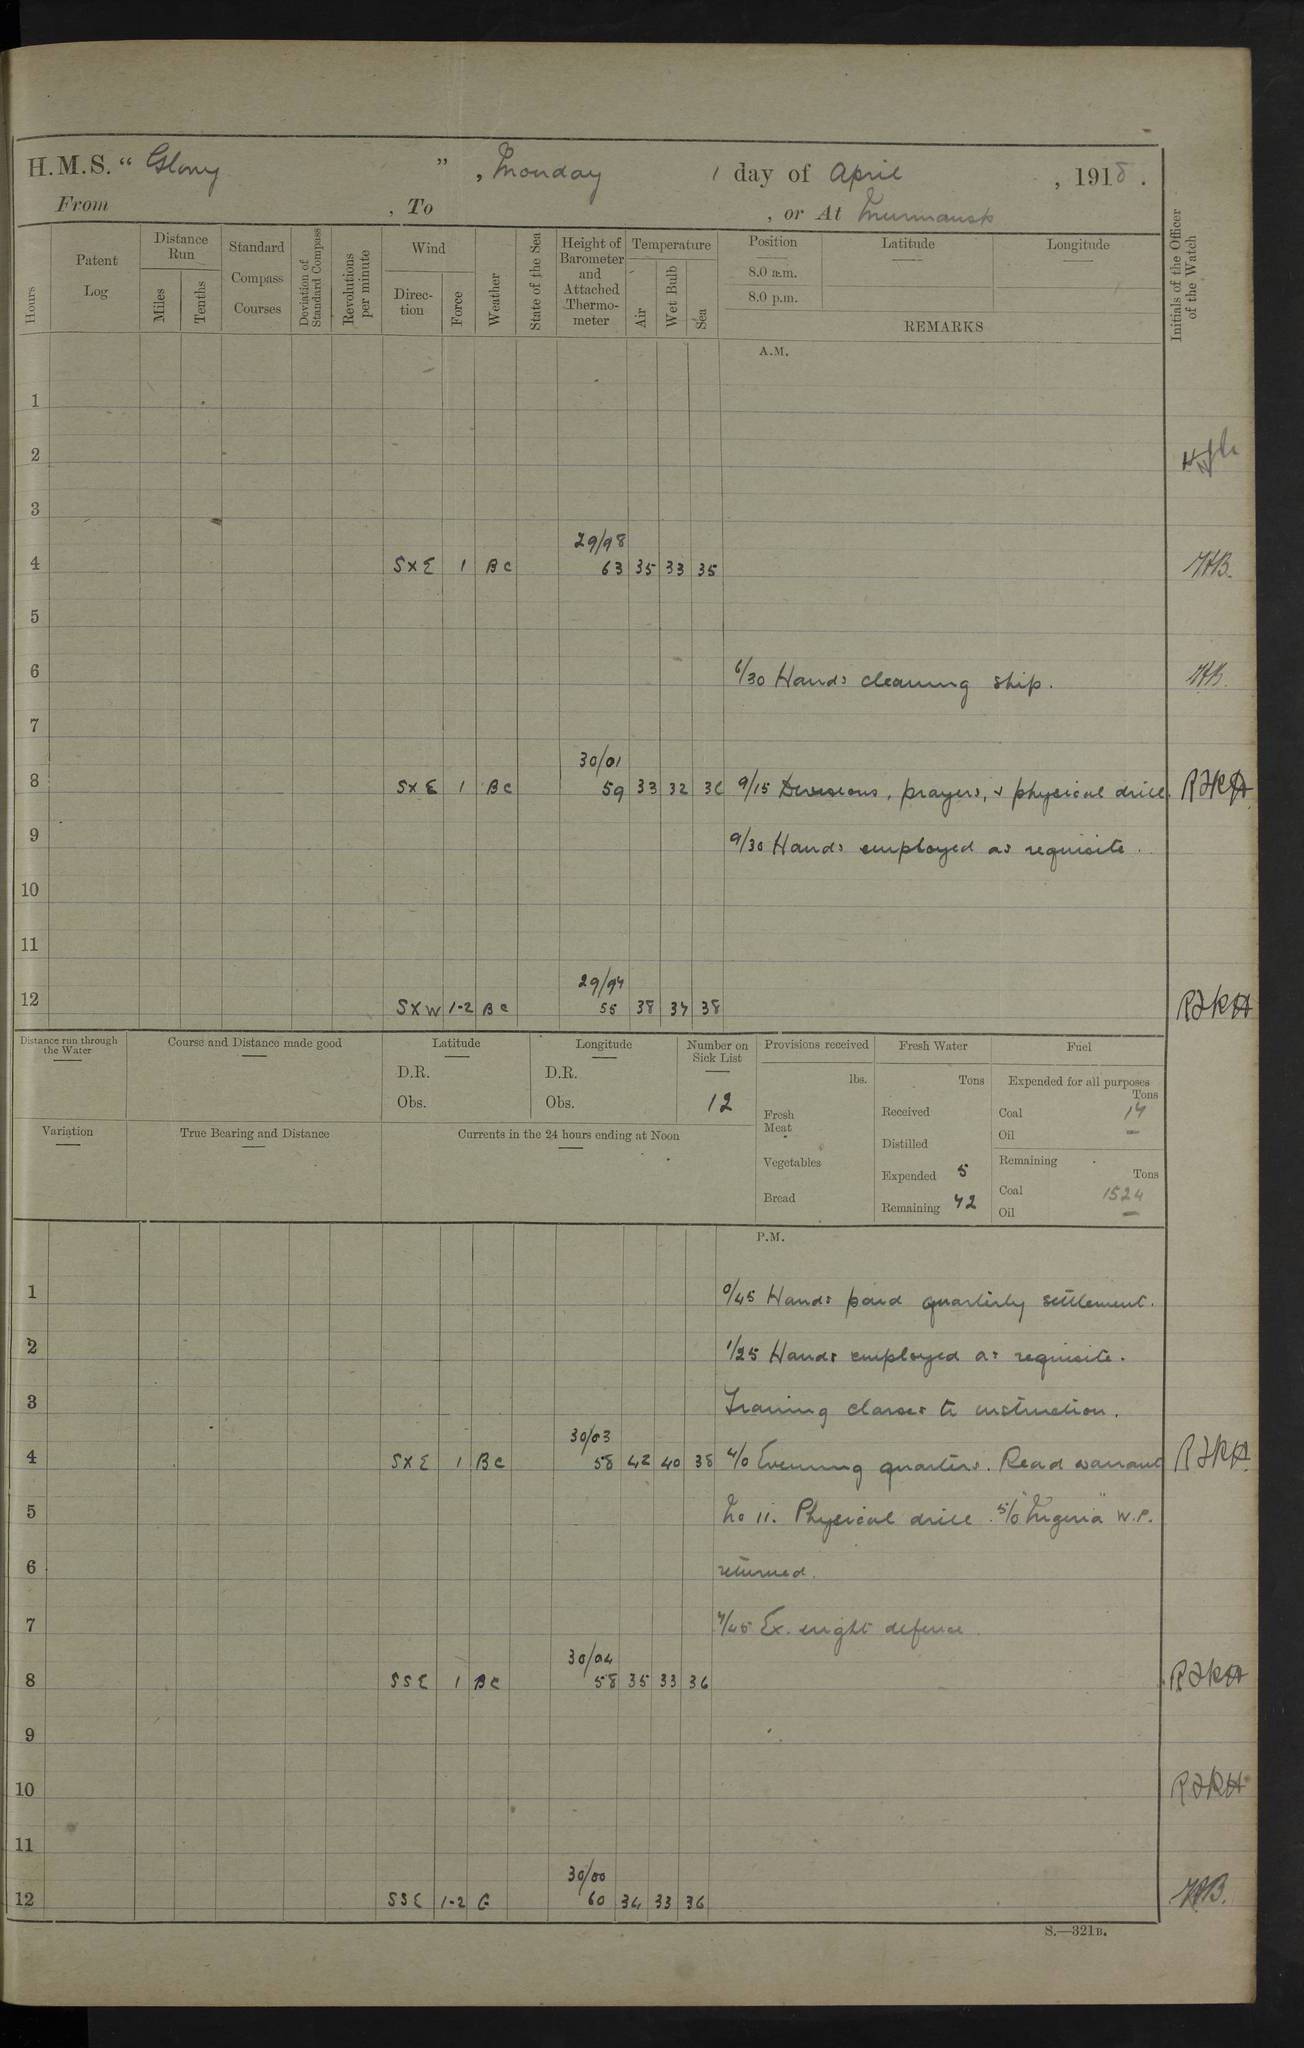 H.M.S. " Glory " , Monday 1 day of April , 1918 .
From , To , or At Murmansk
Hours
Patent Log
Distance Run
Miles
Tenths
Standard Compass Courses
Deviation of Standard Compass
Revolutions per minute
Wind
Direc- tion
Force
Weather
State of the Sea
Height of Barometer and Attached Thermo- meter
Temperature
Air
Wet Bulb
Sea
Position
8.0 a.m.
8.0 p.m.
Latitude
Longitude
REMARKS
Initials of the Officer of the Watch
A.M.
1
2
3
29/98
4 SXE 1 BC 63 35 33 35
5
6 6/30 Hands cleaning ship.
7
30/01
8 SXE 1 BC 59 33 32 36 9/15 Divisions, prayers, & physical drill. RJKH
9 9/30 Hands employed as requisite.
10
11
29/94
12 SXW 1-2 BC 55 38 37 38 RJKH
Distance run through the Water
Course and Distance made good
Latitude
D.R.
Obs.
Longitude
D.R.
Obs.
Number on Sick List
12
Provisions received
lbs.
Fresh Meat
Vegetables
Bread
Fresh Water
Tons
Received
Distilled
Expended 5
Remaining 42
Fuel
Expended for all purposes
Tons
Coal 14
Oil —
Remaining
Tons
Coal 1524
Oil —
Variation
True Bearing and Distance
Currents in the 24 hours ending at Noon
P.M.
1 0/45 Hands paid quarterly settlement.
2 1/25 Hands employed as requisite.
3 Training classes to instruction.
30/03
4 SXE 1 BC 58 42 40 38 4/0 Evening quarters. Read warrant RJKH
5 No 11. Physical drill. 5/0 "Nigeria" W.P.
6 returned.
7 7/45 Ex. night defence.
30/04
8 SSE 1 BC 58 35 33 36 RJKH
9
10 RJKH
11
30/00
12 SSE 1-2 C 60 34 33 36
S.—321B.